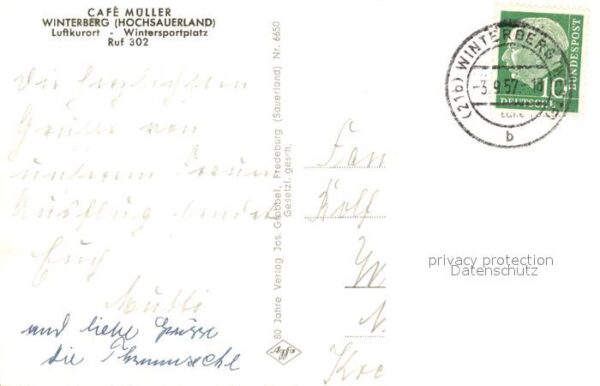 CAFÉ MÜLLER
WINTERBERG (HOCHSAUERLAND)
Luftkurort - Wintersportplatz
Ruf 302
Die herzlichsten
Grüße von
unserem
Ausflug sendet
Euch
Mutti
und liebe Grüsse
die
80 Jahre Verlag Jos. Grobbel, Fredeburg (Sauerland) Nr. 6650
Gesetzl. gesch.
Agfa
(21b) WINTERBERG
-3.9.57
b
10
DEUTSCHE
BUNDESPOST
Fam
Rolf
W
N
Kre
privacy protection
Datenschutz